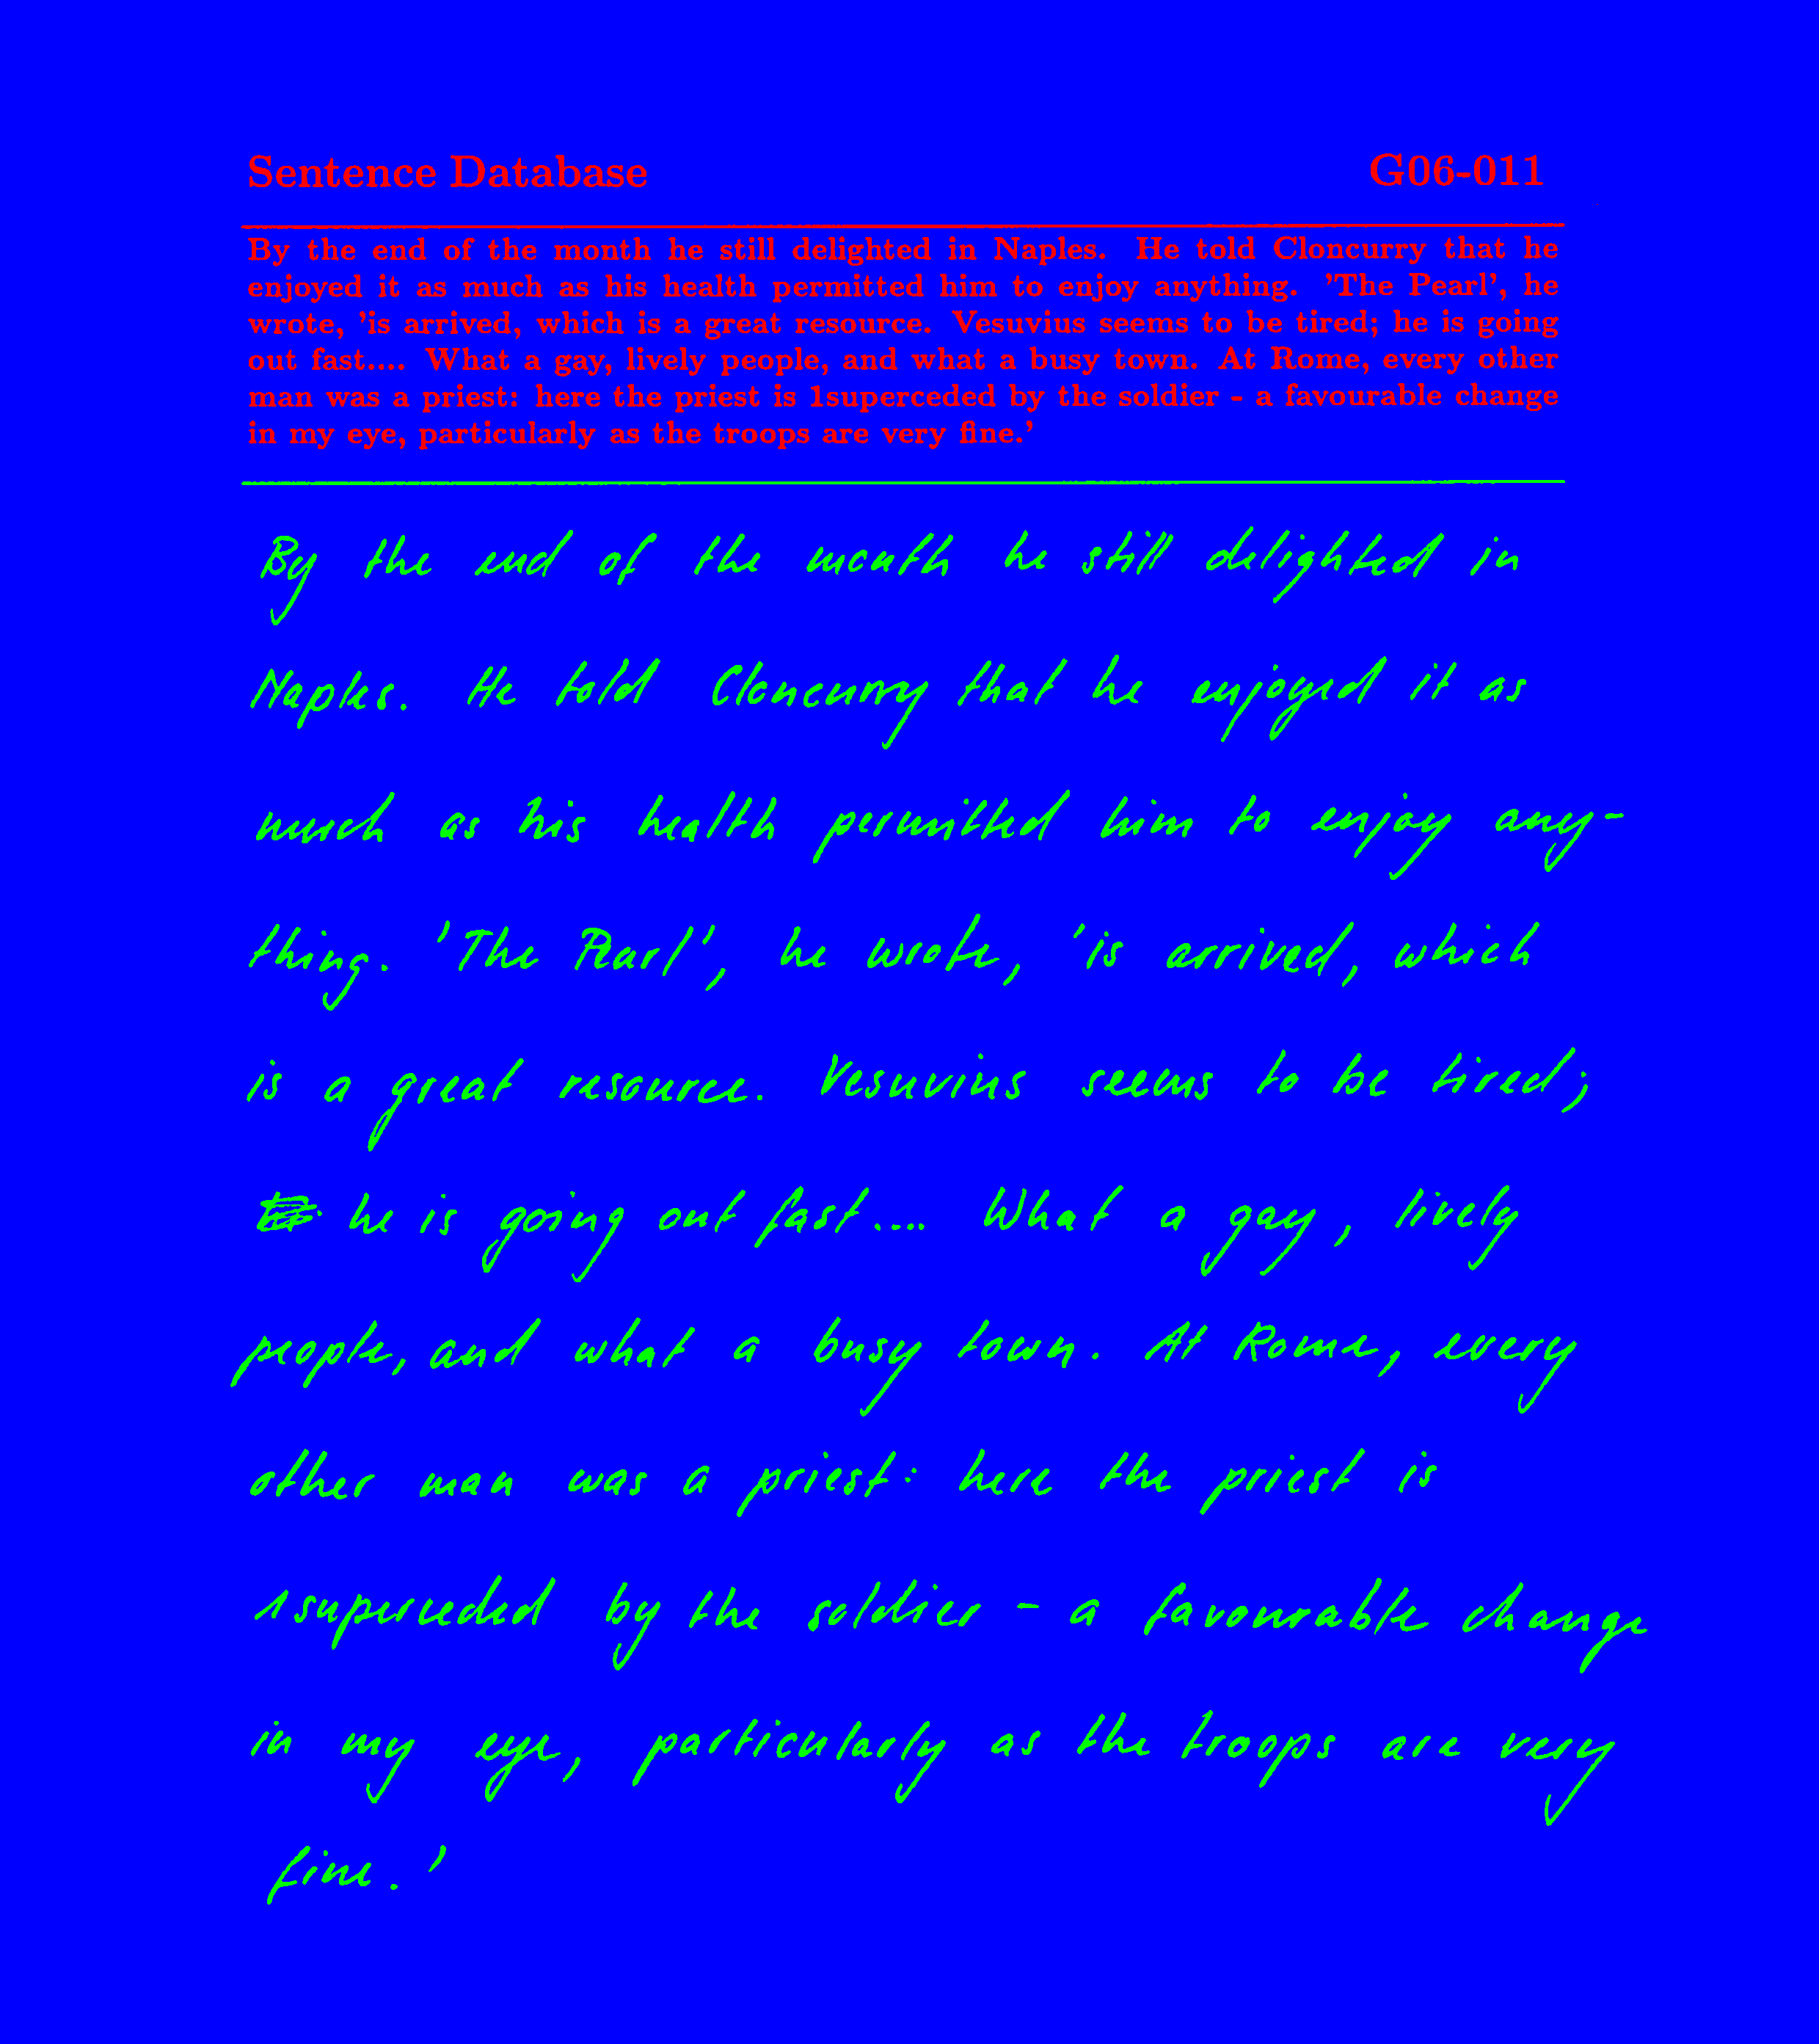 Sentence Database G06-011
By the end of the month he still delighted in Naples. He told Cloncurry that he
enjoyed it as much as his health permitted him to enjoy anything. 'The Pearl', he
wrote, 'is arrived, which is a great resource. Vesuvius seems to be tired; he is going
out fast.... What a gay, lively people, and what a busy town. At Rome, every other
man was a priest: here the priest is 1superceded by the soldier - a favourable change
in my eye, particularly as the troops are very fine.'
By the end of the month he still delighted in
Naples. He told Cloncurry that he enjoyed it as
much as his health permitted him to enjoy any-
thing. 'The Pearl', he wrote, 'is arrived, which
is a great resource. Vesuvius seems to be tired;
he is going out fast.... What a gay, lively
people, and what a busy town. At Rome, every
other man was a priest: here the priest is
1superceded by the soldier - a favourable change
in my eye, particularly as the troops are very
fine.'